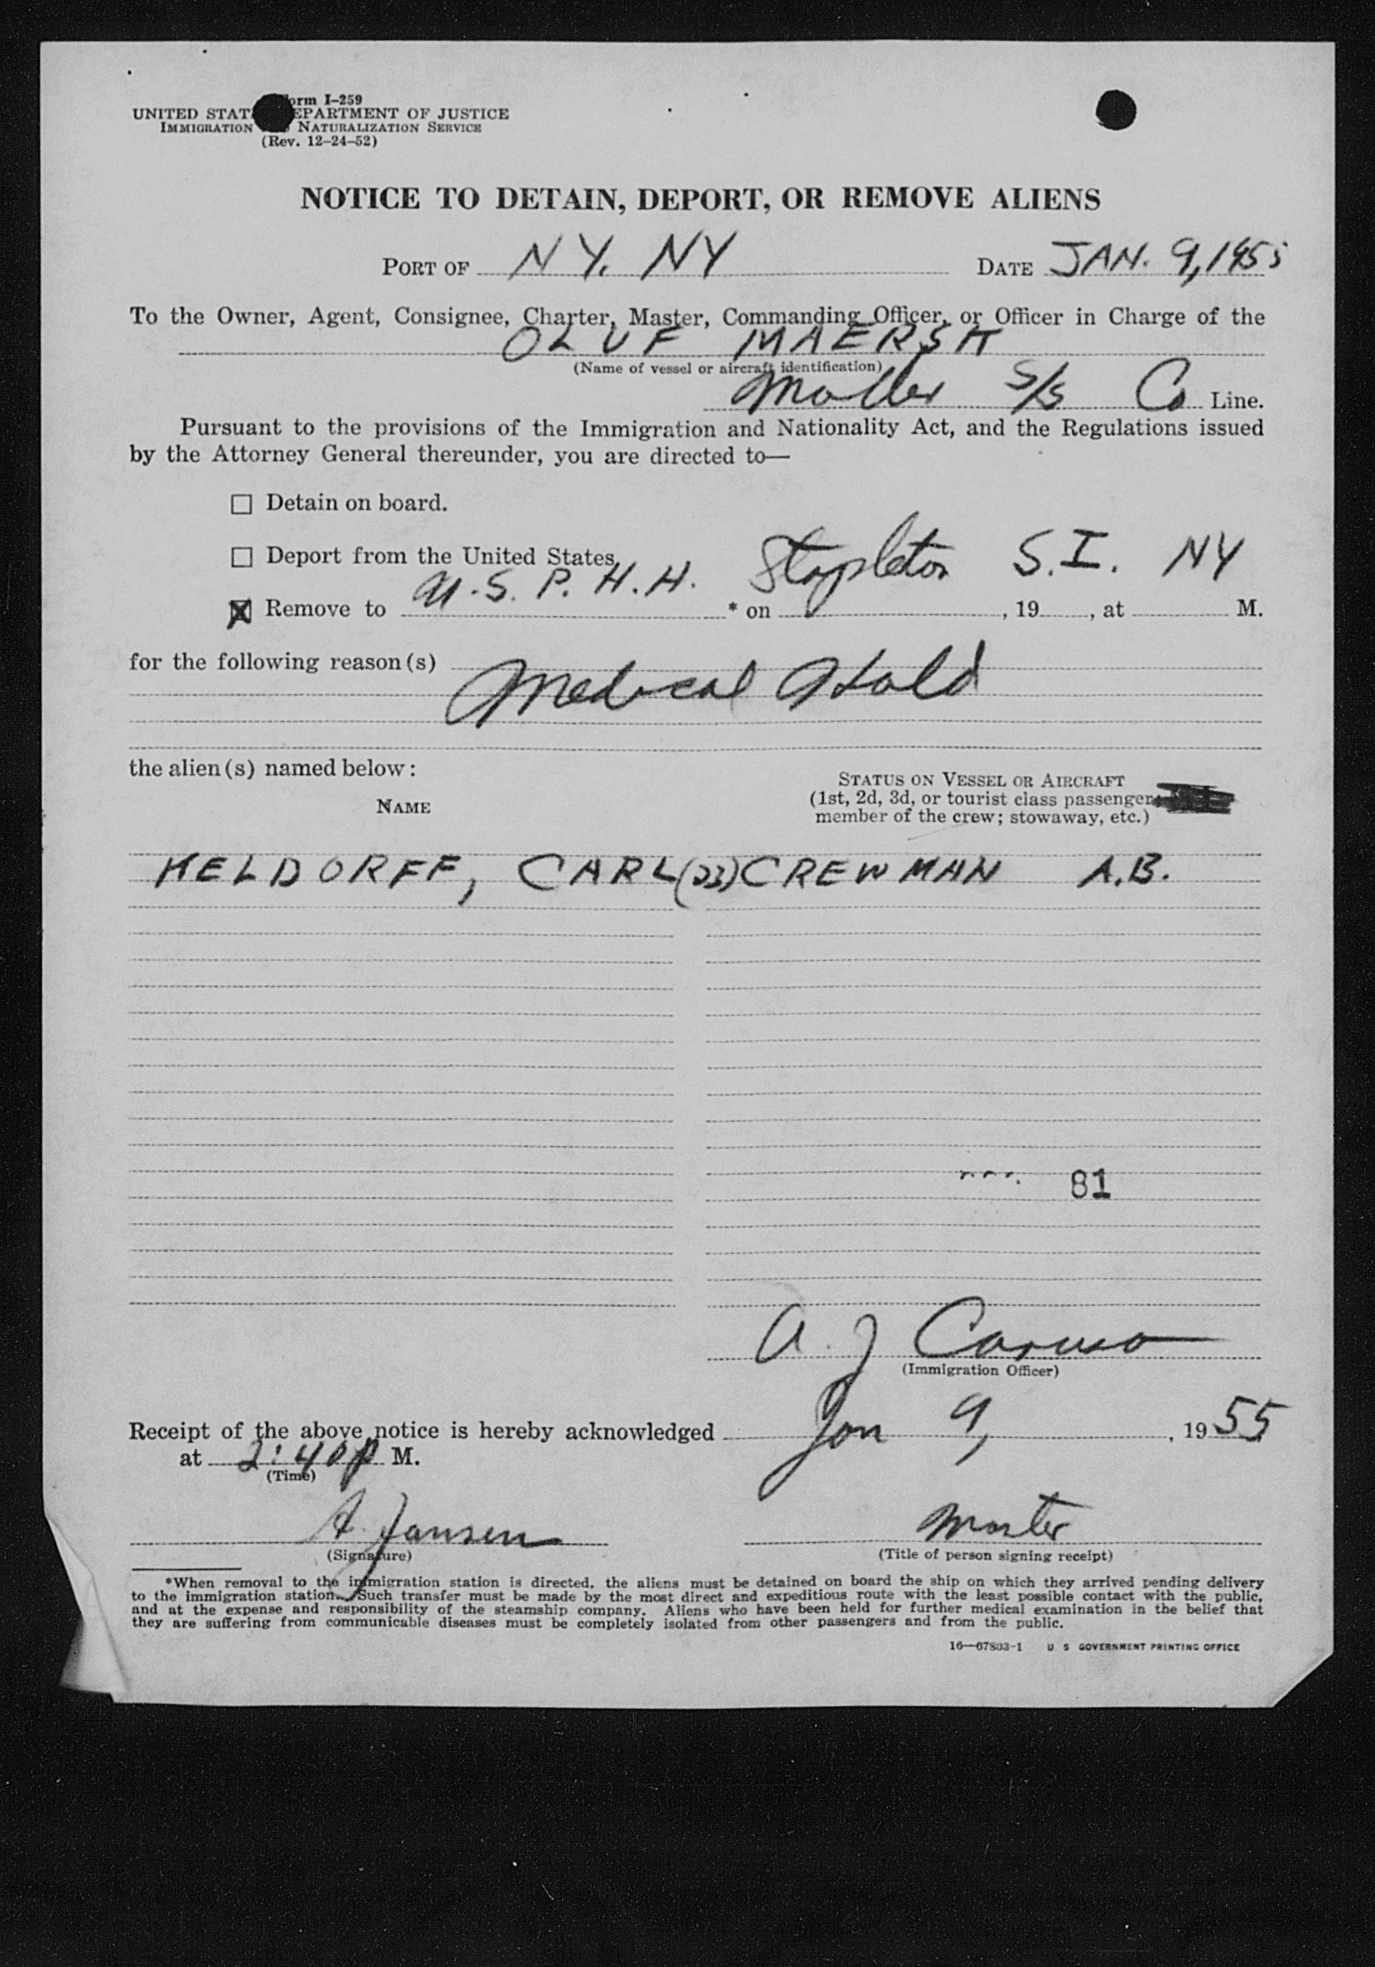 Form I-259
UNITED STATES DEPARTMENT OF JUSTICE
IMMIGRATION AND NATURALIZATION SERVICE
(Rev. 12-24-52)
NOTICE TO DETAIN, DEPORT, OR REMOVE ALIENS
PORT OF N Y. NY DATE JAN. 9, 1955
To the Owner, Agent, Consignee, Charter, Master, Commanding Officer, or Officer in Charge of the
OLUF MAERSK
(Name of vessel or aircraft identification)
Moller S/S Co Line.
Pursuant to the provisions of the Immigration and Nationality Act, and the Regulations issued
by the Attorney General thereunder, you are directed to—
☐ Detain on board.
☐ Deport from the United States.
☒ Remove to U.S. P. H. H. * on Stapleton S.I. NY , 19 , at M.
for the following reason(s) Medical Hold
the alien(s) named below:
NAME
STATUS ON VESSEL OR AIRCRAFT
(1st, 2d, 3d, or tourist class passenger;
member of the crew; stowaway, etc.)
KELDORFF, CARL (23) CREWMAN A.B.
81
A. J Caruso
(Immigration Officer)
Receipt of the above notice is hereby acknowledged Jan 9, , 1955
at 2:40 p M.
(Time)
A. Jansen Master
(Signature) (Title of person signing receipt)
*When removal to the immigration station is directed, the aliens must be detained on board the ship on which they arrived pending delivery
to the immigration station. Such transfer must be made by the most direct and expeditious route with the least possible contact with the public,
and at the expense and responsibility of the steamship company. Aliens who have been held for further medical examination in the belief that
they are suffering from communicable diseases must be completely isolated from other passengers and from the public.
16—67803-1 U S GOVERNMENT PRINTING OFFICE